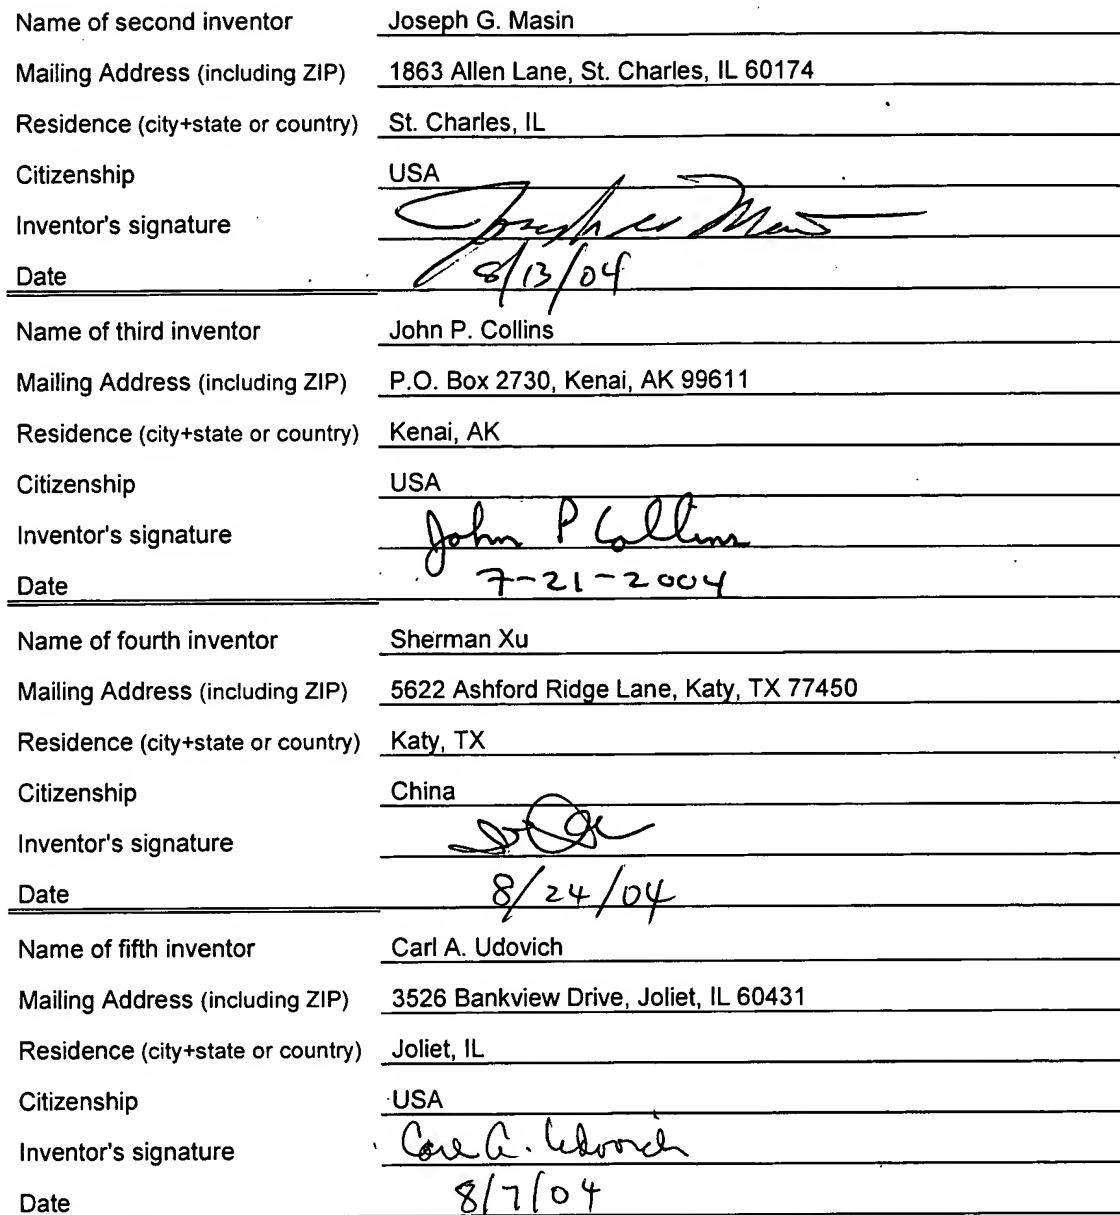 Name of second inventor Joseph G. Masin
Mailing Address (including ZIP) 1863 Allen Lane, St. Charles, IL 60174
Residence (city+state or country) St. Charles, IL
Citizenship USA
Inventor's signature Joseph Masin
Date 8/13/04
Name of third inventor John P. Collins
Mailing Address (including ZIP) P.O. Box 2730, Kenai, AK 99611
Residence (city+state or country) Kenai, AK
Citizenship USA
Inventor's signature John P Collins
Date 7-21-2004
Name of fourth inventor Sherman Xu
Mailing Address (including ZIP) 5622 Ashford Ridge Lane, Katy, TX 77450
Residence (city+state or country) Katy, TX
Citizenship China
Inventor's signature
Date 8/24/04
Name of fifth inventor Carl A. Udovich
Mailing Address (including ZIP) 3526 Bankview Drive, Joliet, IL 60431
Residence (city+state or country) Joliet, IL
Citizenship USA
Inventor's signature Carl A. Udovich
Date 8/7/04